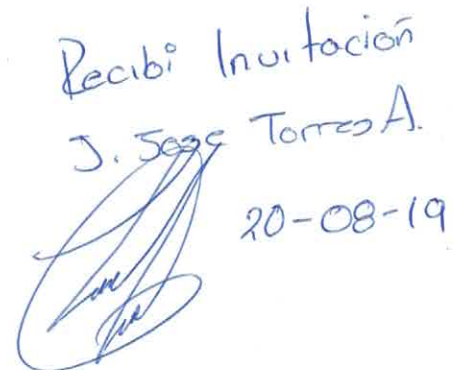 Recibi Invitación
J. Jose Torres A.
20-08-19